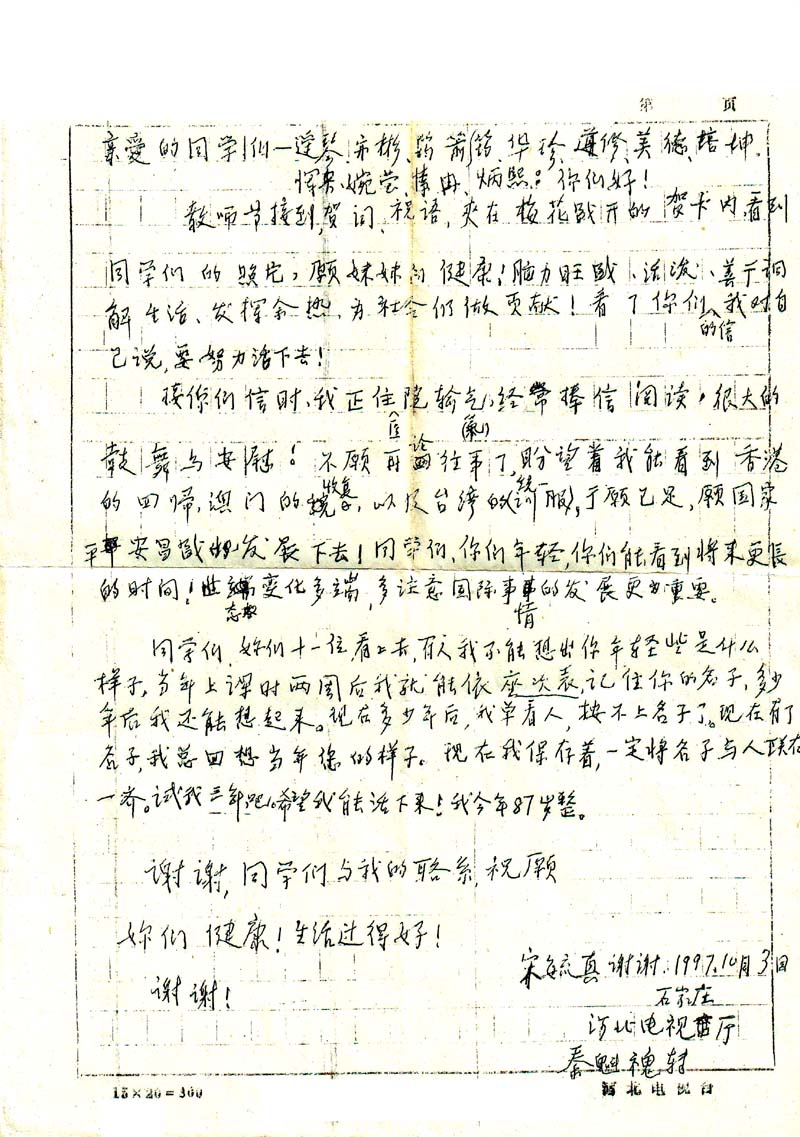 第 页
亲爱的同学们—逆琴、宋彬、箭铭、华珍、遵修、美德、培坤、
婉莹、炳熙：你们好！
教师节接到贺词、祝语，夹在梅花盛开的贺卡内，看到
同学们的照片，愿妹妹们健康！脑力旺盛、活泼、善于调
解生活、发挥余热，为社会们做贡献！看了你们的信，我对自
己说，要努力活下去！
接你们信时，我正住医院输氧气，经常捧信阅读，很大的
鼓舞与安慰！不愿再论往事了，盼望着我能看到香港
的回归，澳门的收复，以及台湾的统一服，于愿已足，愿国家
平安昌盛发展下去！同学们，你们年轻，你们能看到将来更长
的时间！世态变化多端，多注意国际事情的发展更为重要。
同学们，妳们十一位看上去，有人我不能想出你年轻些是什么
样子，当年上课时两周后我就能依座次表，记住你的名子，多少
年后我还能想起来。现在多少年后，我单看人，按不上名子了。现在有了
名子，我总回想当年您的样子。现在我保存着，一定将名子与人联在
一齐。试我三年吧！希望我能活下来！我今年87岁整。
谢谢，同学们与我的联系，祝愿
妳们健康！生活过得好！
谢谢！
宋毓真谢谢．1997.10月3日
石家庄
河北电视厅
秦魁魂转
15×20=300
河北电视台